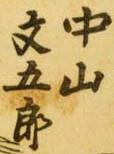 中山
文五郎